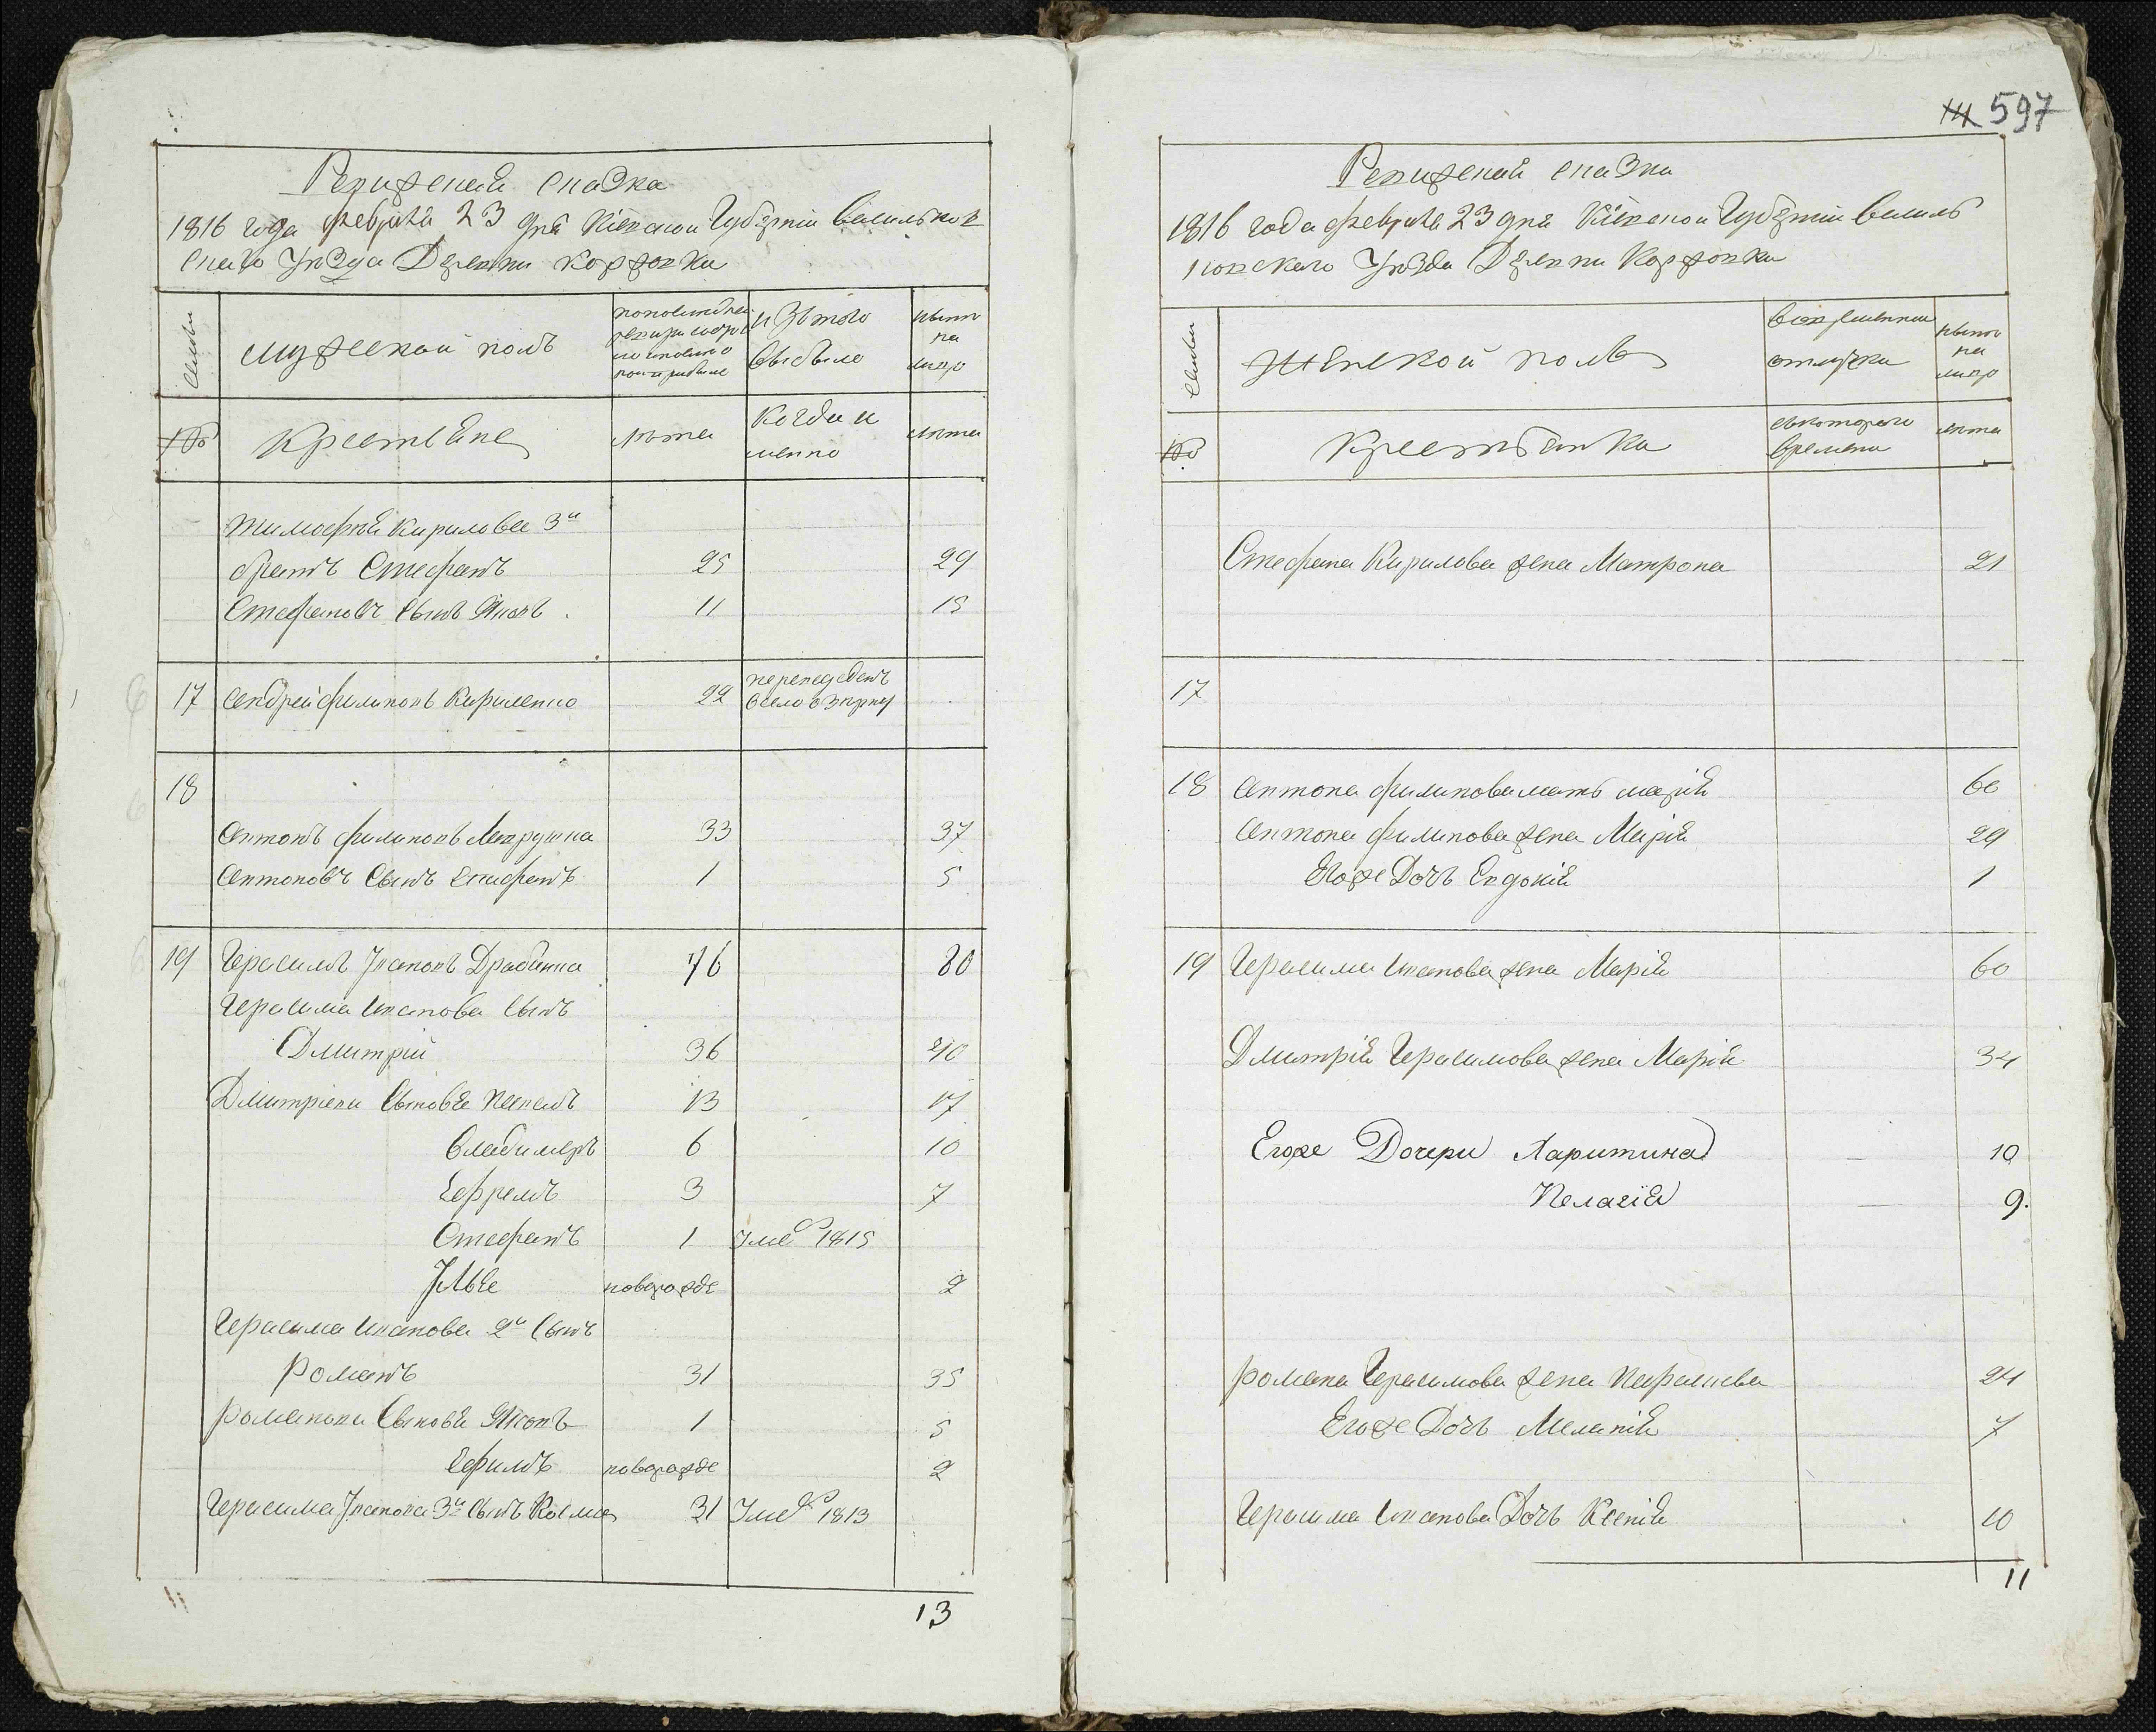 Ревижская сказка
1816 года февраля 23 дня Кіевской Губерніи Васильков
скаго Уѣзда Деревни Коржовки
Семьи
мужеской полъ
изътого
выбыло
ныне
на
лицо
№
Крестьяне
лѣта
Когда и
менно
лѣта
Тимофѣя Кирилова 3й
братъ Стефанъ 25 29
Стефановъ Сынъ Яковъ 11 15
17 Андрей Филиповъ Кириленко 22 переведенъ
в село
18
Антонъ Филиповъ 33 37
Антоновъ Сынъ Епифанъ 1 5
19 Герасимъ Ивановъ Драбинка 76 80
Герасима Иванова Сынъ
Дмитрій 36 40
Дмитріевы Сыновья Павелъ 13 17
Владимеръ 6 10
Ефремъ 3 7
Стефанъ 1 Уме 1815
Илья новорожде 2
Герасима Иванова 2й Сынъ
Романъ 31 35
Романовы Сыновья Яковъ 1 5
Ефимъ новорожде 2
Герасима Иванова 3й Сынъ Косма 31 Уме 1813
13
597
Ревижской сказки
1816 года февраля 23 дня Кіевской Губерніи Василь
ковскаго Уѣзда Деревни Коржовки
Семьи
Женской полъ
вовременной
отлучки
ныне
на
лицо
№
Крестьянки
съкотораго
времени
лѣта
Стефана Кирилова жена Матрона 21
17
18 Антона Филипова мать Марія 60
Антона Филипова жена Марія 29
Егоже Дочь Евдокія 1
19 Герасима Иванова жена Марія 60
Дмитрія Герасимова жена Марія 34
Егоже Дочери Харитина 10
Пелагія 9.
Романа Герасимова жена Параскева 24
Егоже Дочь Меланія 7
Герасима Иванова Дочь Ксенія 10
11